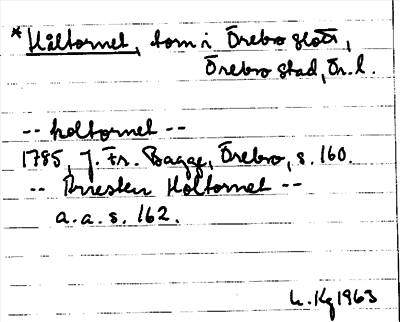 *Håltornet, torn i Örebro slott,
Örebro stad, Ör. l.
-- holtornet --
1785, J. Fr. Bagge, Örebro, s. 160.
-- Arresten Holtornet --
a. a. s. 162.
1963